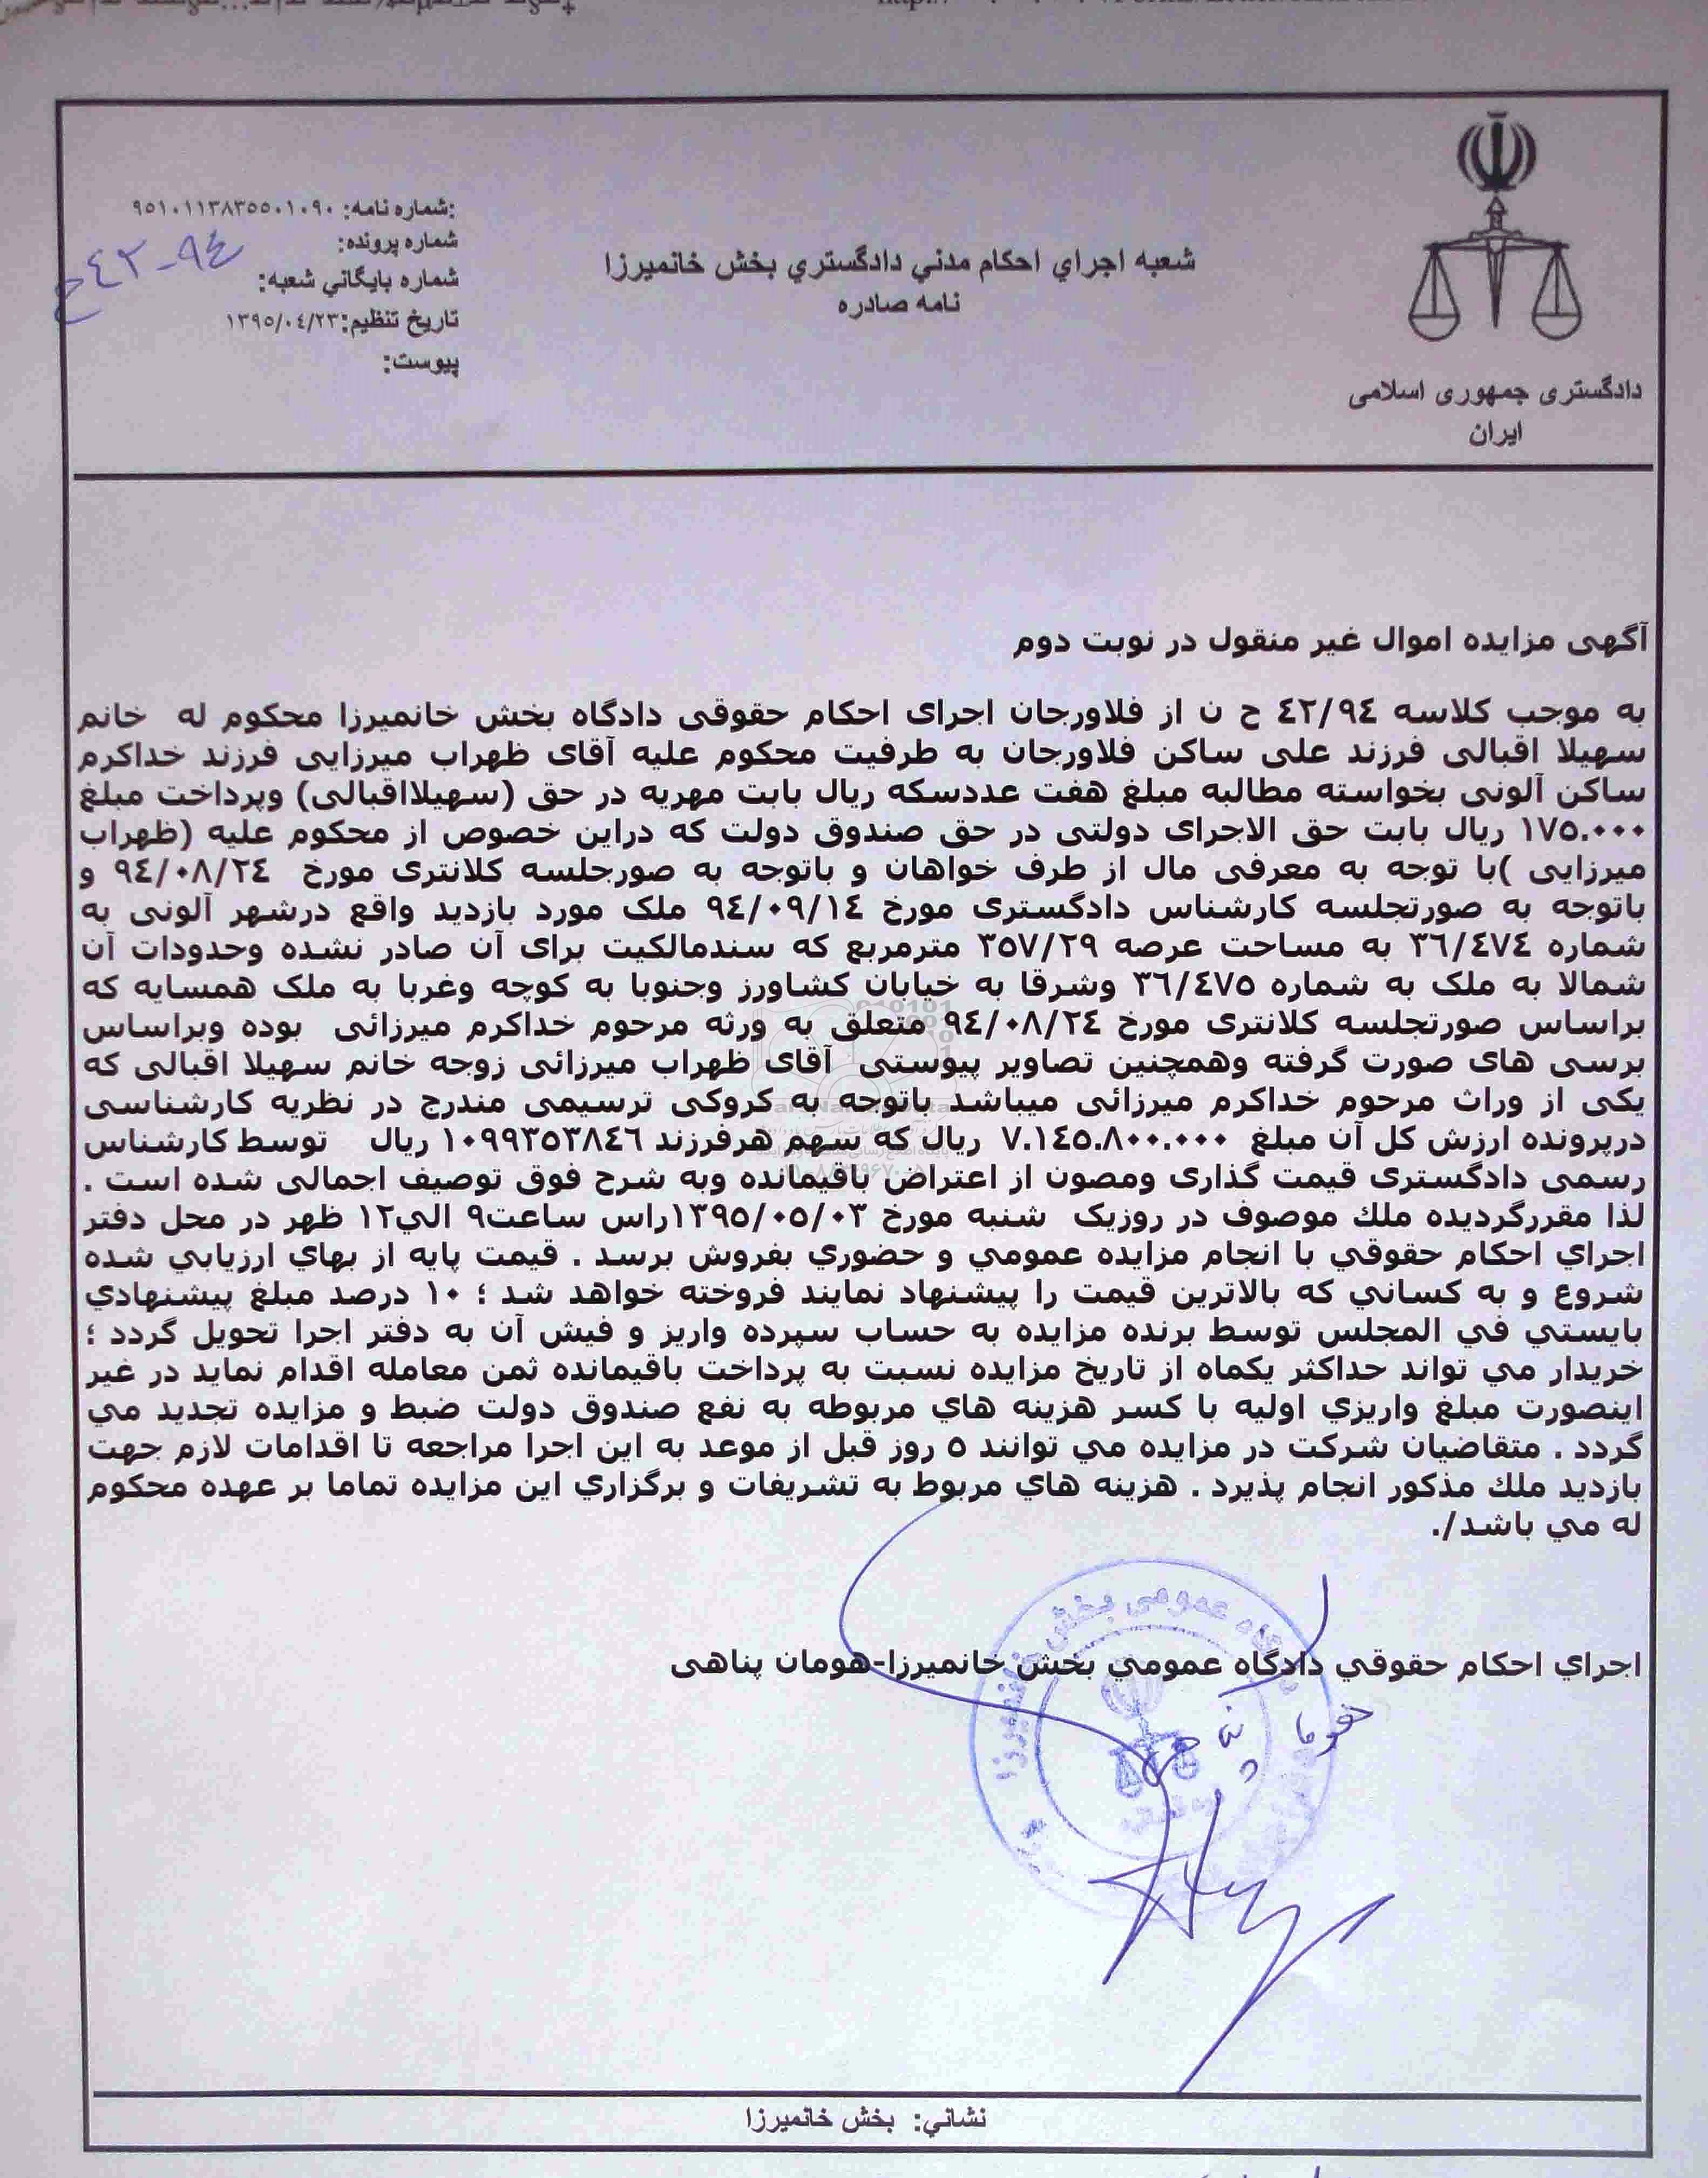 شعبه اجراي احكام مدني دادگستري بخش خانميرزا
نامه صادره
دادگستری جمهوری اسلامی
ایران
:شماره نامه: ۹۵۱۰۱۱۳۸۳۵۵۰۰۱۰۹۰
شماره پرونده:
شماره بايگاني شعبه:
تاريخ تنظيم:۱۳۹۵/۰٤/۲۳
پيوست:
آگهی مزایده اموال غیر منقول در نوبت دوم
به موجب کلاسه ٤٢/٩٤ ح ن از فلاورجان اجرای احکام حقوقی دادگاه بخش خانمیرزا محکوم له خانم
سهیلا اقبالی فرزند علی ساکن فلاورجان به طرفیت محکوم علیه آقای ظهراب میرزایی فرزند خداکرم
ساکن آلونی بخواسته مطالبه مبلغ هفت عددسکه ریال بابت مهریه در حق (سهیلااقبالی) وپرداخت مبلغ
١٧٥.٠٠٠ ریال بابت حق الاجرای دولتی در حق صندوق دولت که دراین خصوص از محکوم علیه (ظهراب
میرزایی )با توجه به معرفی مال از طرف خواهان و باتوجه به صورجلسه کلانتری مورخ ٩٤/٠٨/٢٤ و
باتوجه به صورتجلسه کارشناس دادگستری مورخ ٩٤/٠٩/١٤ ملک مورد بازدید واقع درشهر آلونی به
شماره ٣٦/٤٧٤ به مساحت عرصه ٣٥٧/٢٩ مترمربع که سندمالکیت برای آن صادر نشده وحدودات آن
شمالا به ملک به شماره ٣٦/٤٧٥ وشرقا به خیابان کشاورز وجنوبا به کوچه وغربا به ملک همسایه که
براساس صورتجلسه کلانتری مورخ ٩٤/٠٨/٢٤ متعلق به ورثه مرحوم خداکرم میرزائی بوده وبراساس
برسی های صورت گرفته وهمچنین تصاویر پیوستی آقای ظهراب میرزائی زوجه خانم سهیلا اقبالی که
یکی از وراث مرحوم خداکرم میرزائی میباشد باتوجه به کروکی ترسیمی مندرج در نظریه کارشناسی
درپرونده ارزش کل آن مبلغ ٧.١٤٥.٨٠٠.٠٠٠ ریال که سهم هرفرزند ١٠٩٩٣٥٣٨٤٦ ریال توسط کارشناس
رسمی دادگستری قیمت گذاری ومصون از اعتراض باقیمانده وبه شرح فوق توصیف اجمالی شده است .
لذا مقررگرديده ملك موصوف در روزیک شنبه مورخ ١٣٩٥/٠٥/٠٣راس ساعت٩ الي١٢ ظهر در محل دفتر
اجراي احكام حقوقي با انجام مزايده عمومي و حضوري بفروش برسد . قيمت پايه از بهاي ارزيابي شده
شروع و به كساني كه بالاترين قيمت را پيشنهاد نمايند فروخته خواهد شد ؛ ١٠ درصد مبلغ پيشنهادي
بايستي في المجلس توسط برنده مزايده به حساب سپرده واريز و فيش آن به دفتر اجرا تحويل گردد ؛
خريدار مي تواند حداكثر يكماه از تاريخ مزايده نسبت به پرداخت باقيمانده ثمن معامله اقدام نمايد در غير
اينصورت مبلغ واريزي اوليه با كسر هزينه هاي مربوطه به نفع صندوق دولت ضبط و مزايده تجديد مي
گردد . متقاضيان شركت در مزايده مي توانند ٥ روز قبل از موعد به اين اجرا مراجعه تا اقدامات لازم جهت
بازديد ملك مذكور انجام پذيرد . هزينه هاي مربوط به تشريفات و برگزاري اين مزايده تماما بر عهده محكوم
له مي باشد/.
اجراي احكام حقوقي دادگاه عمومي بخش خانميرزا-هومان پناهی
نشاني: بخش خانميرزا